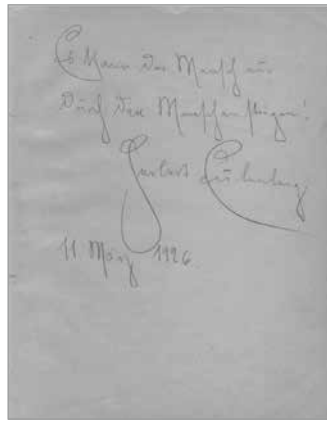 Es kann der Mensch nur
Durch den Menschen steigen!
Herbert Eulenberg
11 März 1926.